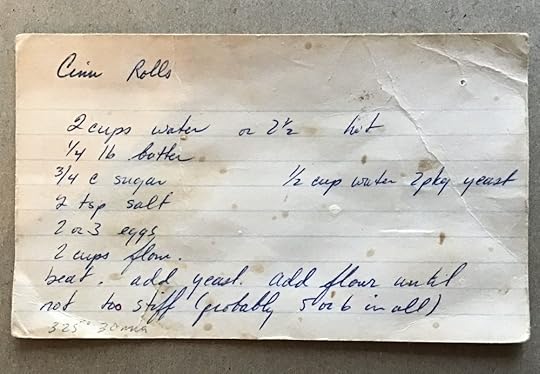 Cinn Rolls
2 cups water or 2 1/2 hot
1/4 lb butter
3/4 c sugar 1/2 cup water 2pkg yeast
2 tsp salt
2 or 3 eggs
2 cups flour.
beat. add yeast. add flour until
not too stiff (probably 5 or 6 in all)
325° 30 min